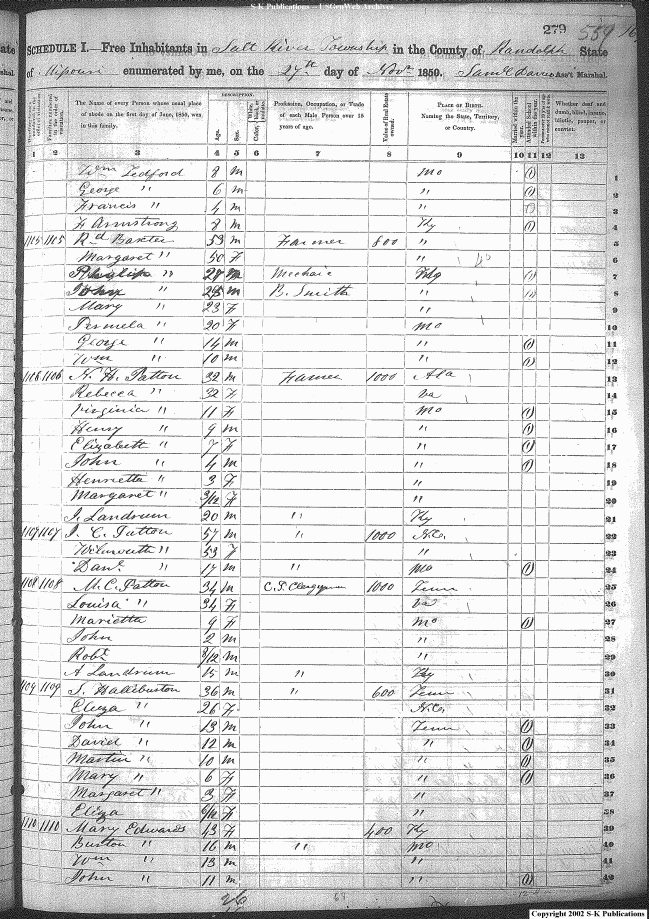 S-K Publications - USGenWeb Archives
279 559
SCHEDULE I.—Free Inhabitants in Salt River Township in the County of Randolph State
of Missouri enumerated by me, on the 27th day of Novr 1850. Saml Davis Ass't Marshal.
DESCRIPTION.
The Name of every Person whose usual place of abode on the first day of June, 1850, was in this family.
Age.
Sex.
Color, White, black, or mulatto.
Profession, Occupation, or Trade of each Male Person over 15 years of age.
Value of Real Estate owned.
PLACE OF BIRTH. Naming the State, Territory, or Country.
Married within the year.
Attended School within the year.
Whether deaf and dumb, blind, insane, idiotic, pauper, or convict.
1 2 3 4 5 6 7 8 9 10 11 12 13
Wm Ledford 8 m Mo 1 1
George " 6 m " 1 2
Francis " 4 m " 1 3
F Armstrong 8 m Ky 1 4
1105 1105 Rd Baxter 53 m Farmer 800 " 5
Margaret " 50 F " 6
" m Mechaic 1 7
John " m B. Smith " 1 8
Mary " 23 F " 9
Permela " 20 F Mo 10
George " 14 m " 1 11
Wm " 10 m " 1 12
1106 1106 N. H. Patton 32 m Farmer 1000 Ala 13
Rebecca " 32 F Va 14
Virginia " 11 F Mo 1 15
Henry " 9 m " 1 16
Elizabeth " 7 F " 1 17
John " 4 m " 1 18
Henrietta " 3 F " 19
Margaret " 3/12 F " 20
J. Landrum 20 m " Ky 21
1107 1107 J. C. Patton 57 m " 1000 N.C. 22
" 53 F " 23
Danl " 17 m " Mo 1 24
1108 1108 M. C. Patton 34 m C. P. Clergyman 1000 Tenn 25
Louisa " 34 F Va 26
Marietta 9 F Mo 1 27
John 2 m " 28
Robt 8/12 m " 29
A Landrum 15 m " Ky 30
1109 1109 J. Halliburton 36 m " 600 Tenn 31
Eliza " 26 F N.C. 32
John " 13 m Tenn 1 33
David " 12 m " 1 34
Martin " 10 m " 1 35
Mary " 6 F " 1 36
Margaret " 3 F " 37
Eliza 6/12 F " 38
1110 1110 Mary Edwards 43 F 400 Ky 39
Burton " 16 m " Mo 40
Wm " 13 m " 41
John " 11 m " 1 42
26
Copyright 2002 S-K Publications